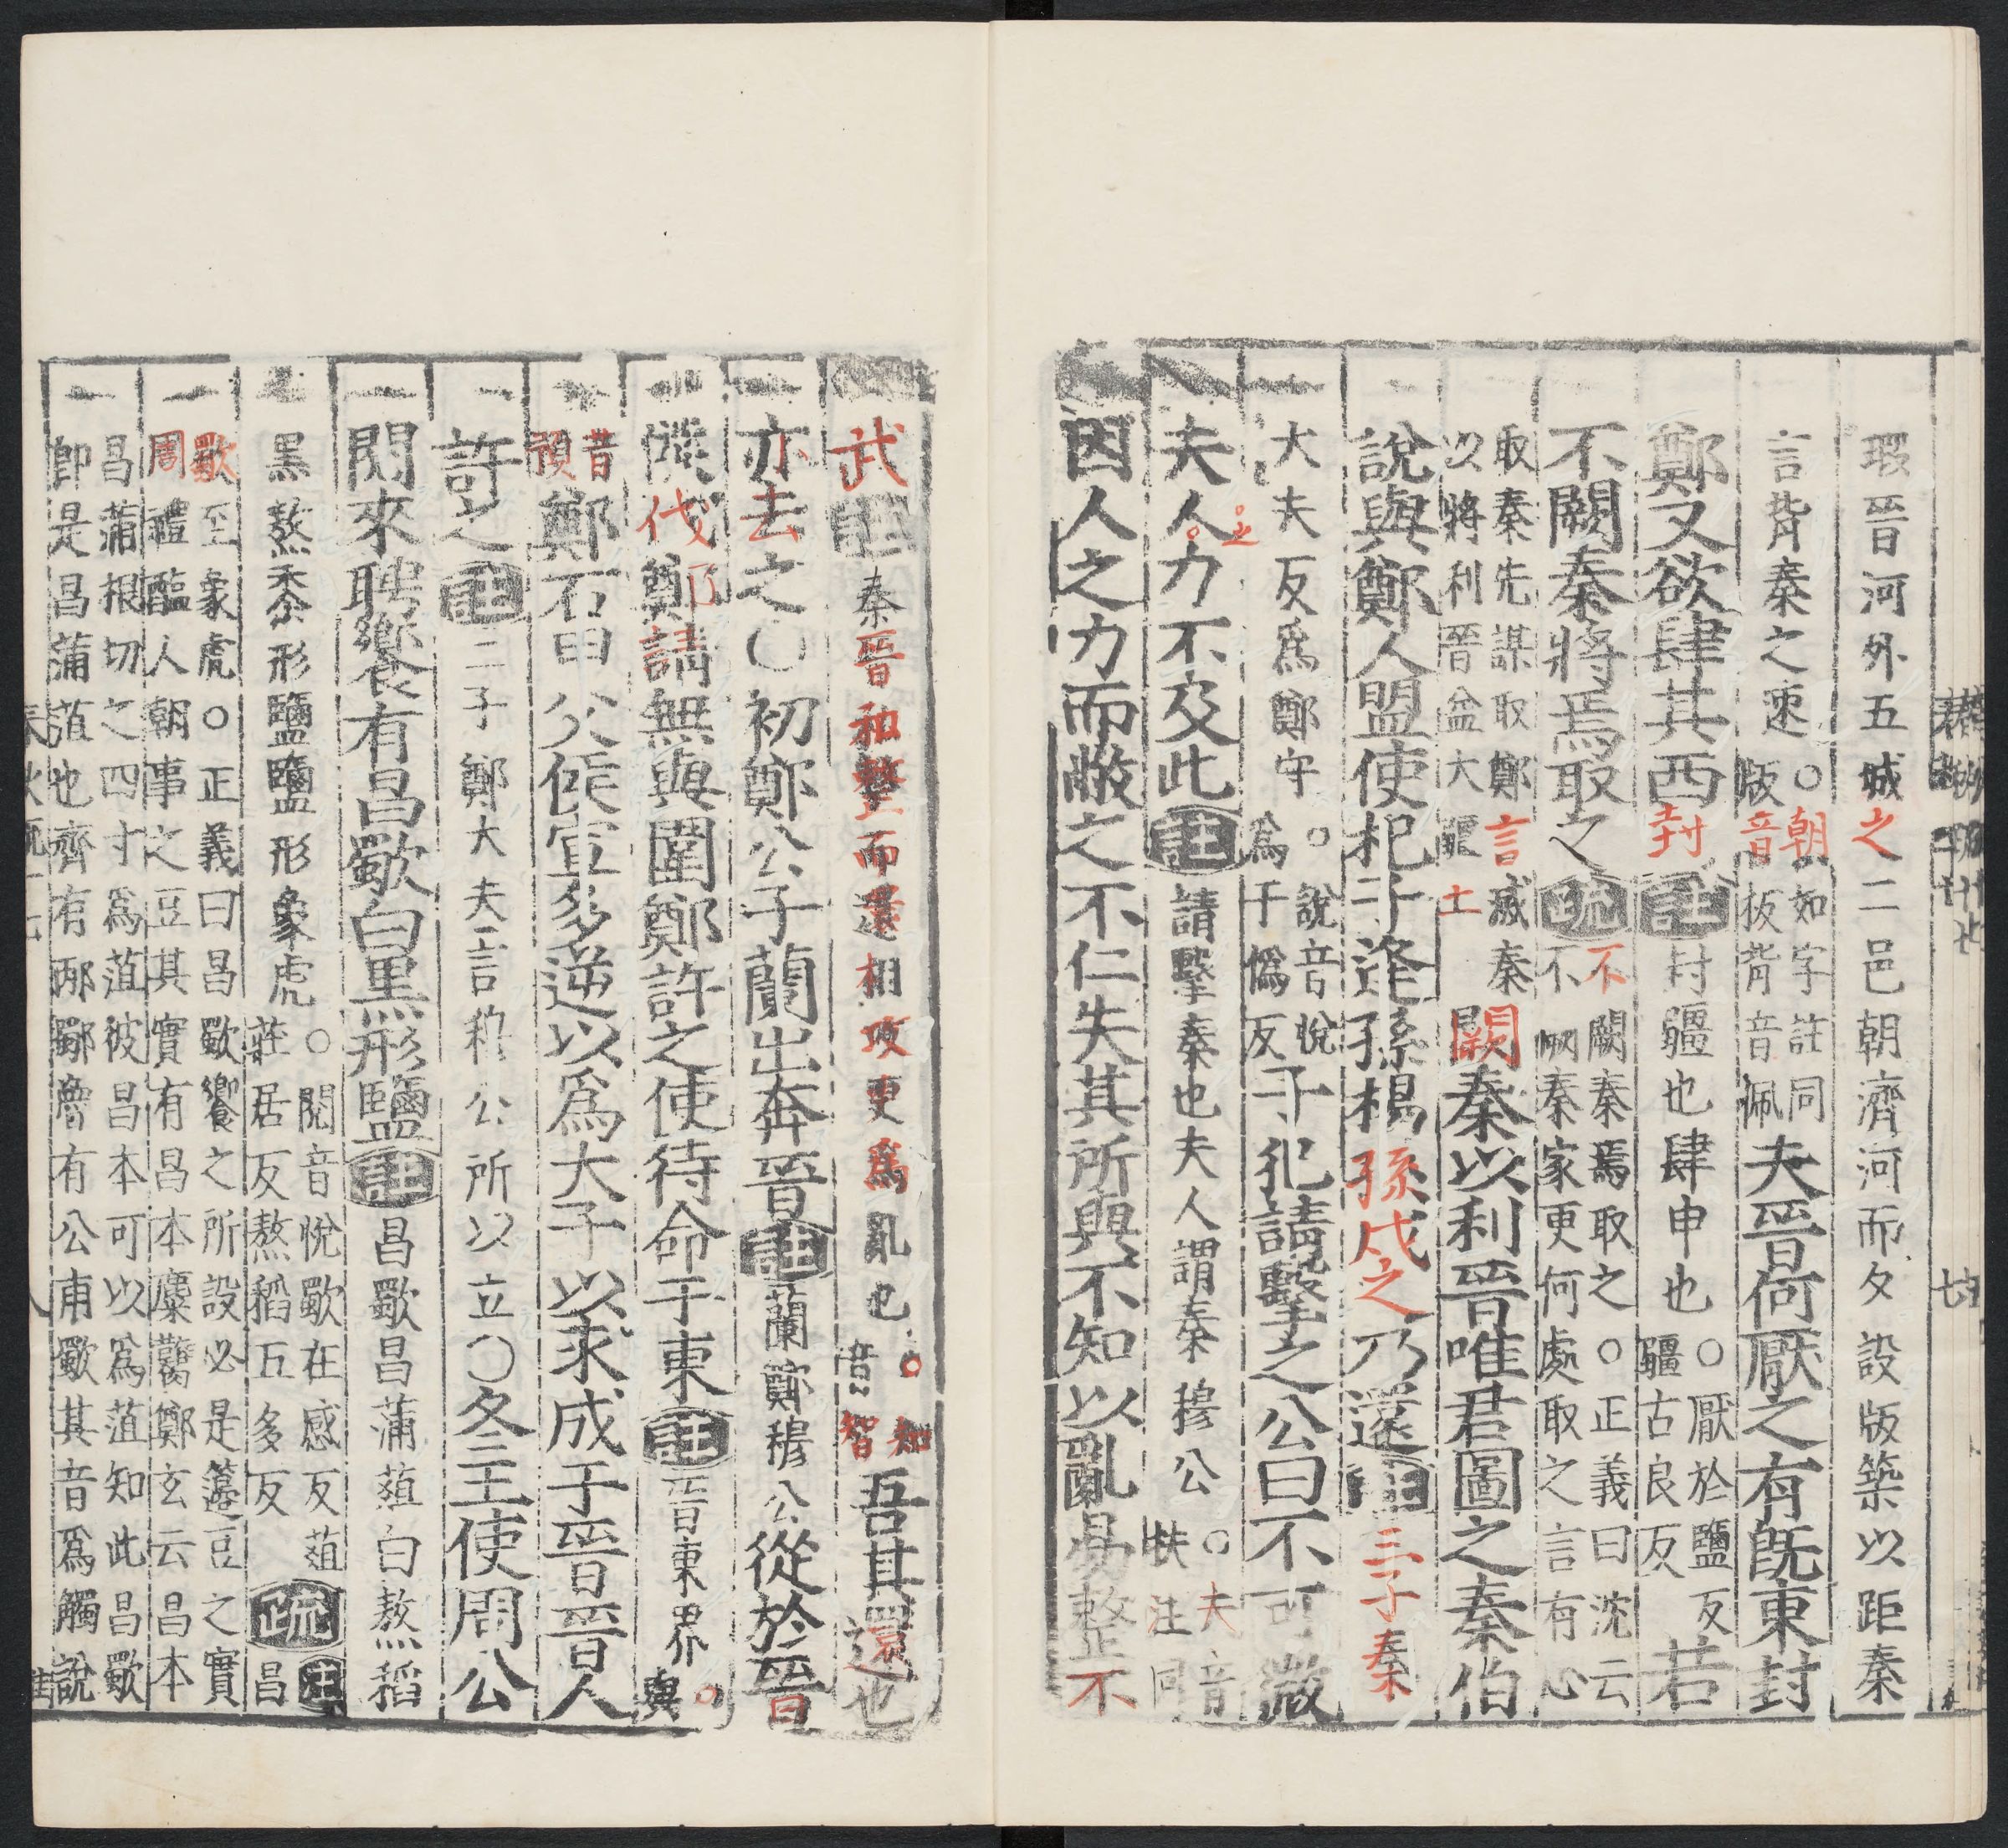 瑕晉河外五城之二邑朝濟河而夕設版築以距秦
言背秦之速○朝如字註同版音板背音佩夫晉何厭之有既東封
鄭又欲肆其西封註封疆也肆申也○厭於鹽反疆古良反若
不闕秦將焉取之疏不闕秦焉取之○正義曰沈云不闕秦家更何處取之言有心
取秦先謀取鄭言滅秦以將利晉益大土闕秦以利晉唯君圖之秦伯
說與鄭人盟使杞子逢孫楊孫戍之乃還註三子秦
大夫反爲鄭守○說音悅爲于僞反子犯請擊之公曰不可微
夫人之力不及此註請擊秦也夫人謂秦穆公○夫音扶注同
因人之力而敝之不仁失其所與不知以亂易整不
武註秦晉和整而還相攻更爲亂也○知音智吾其還也
亦去之○初鄭公子蘭出奔晉註蘭鄭穆公從於晉
侯伐鄭請無與圍鄭許之使待命于東註晉東界○與
音預鄭石甲父侯宣多逆以爲大子以求成于晉晉人
許之註二子鄭大夫言穆公所以立○冬王使周公
閱來聘饗有昌歜白黑形鹽註昌歜昌蒲葅白熬稻
黑熬黍形鹽鹽形象虎○閱音悅歜在感反葅莊居反熬稻五多反疏註昌
歜至象虎○正義曰昌歜饗之所設必是籩豆之實周禮醢人朝事之豆其實有昌本麋臡鄭玄云昌本
昌蒲根切之四寸爲葅彼昌本可以爲葅知此昌歜即是昌蒲葅也齊有邴歜魯有公甫歜其音爲觸說